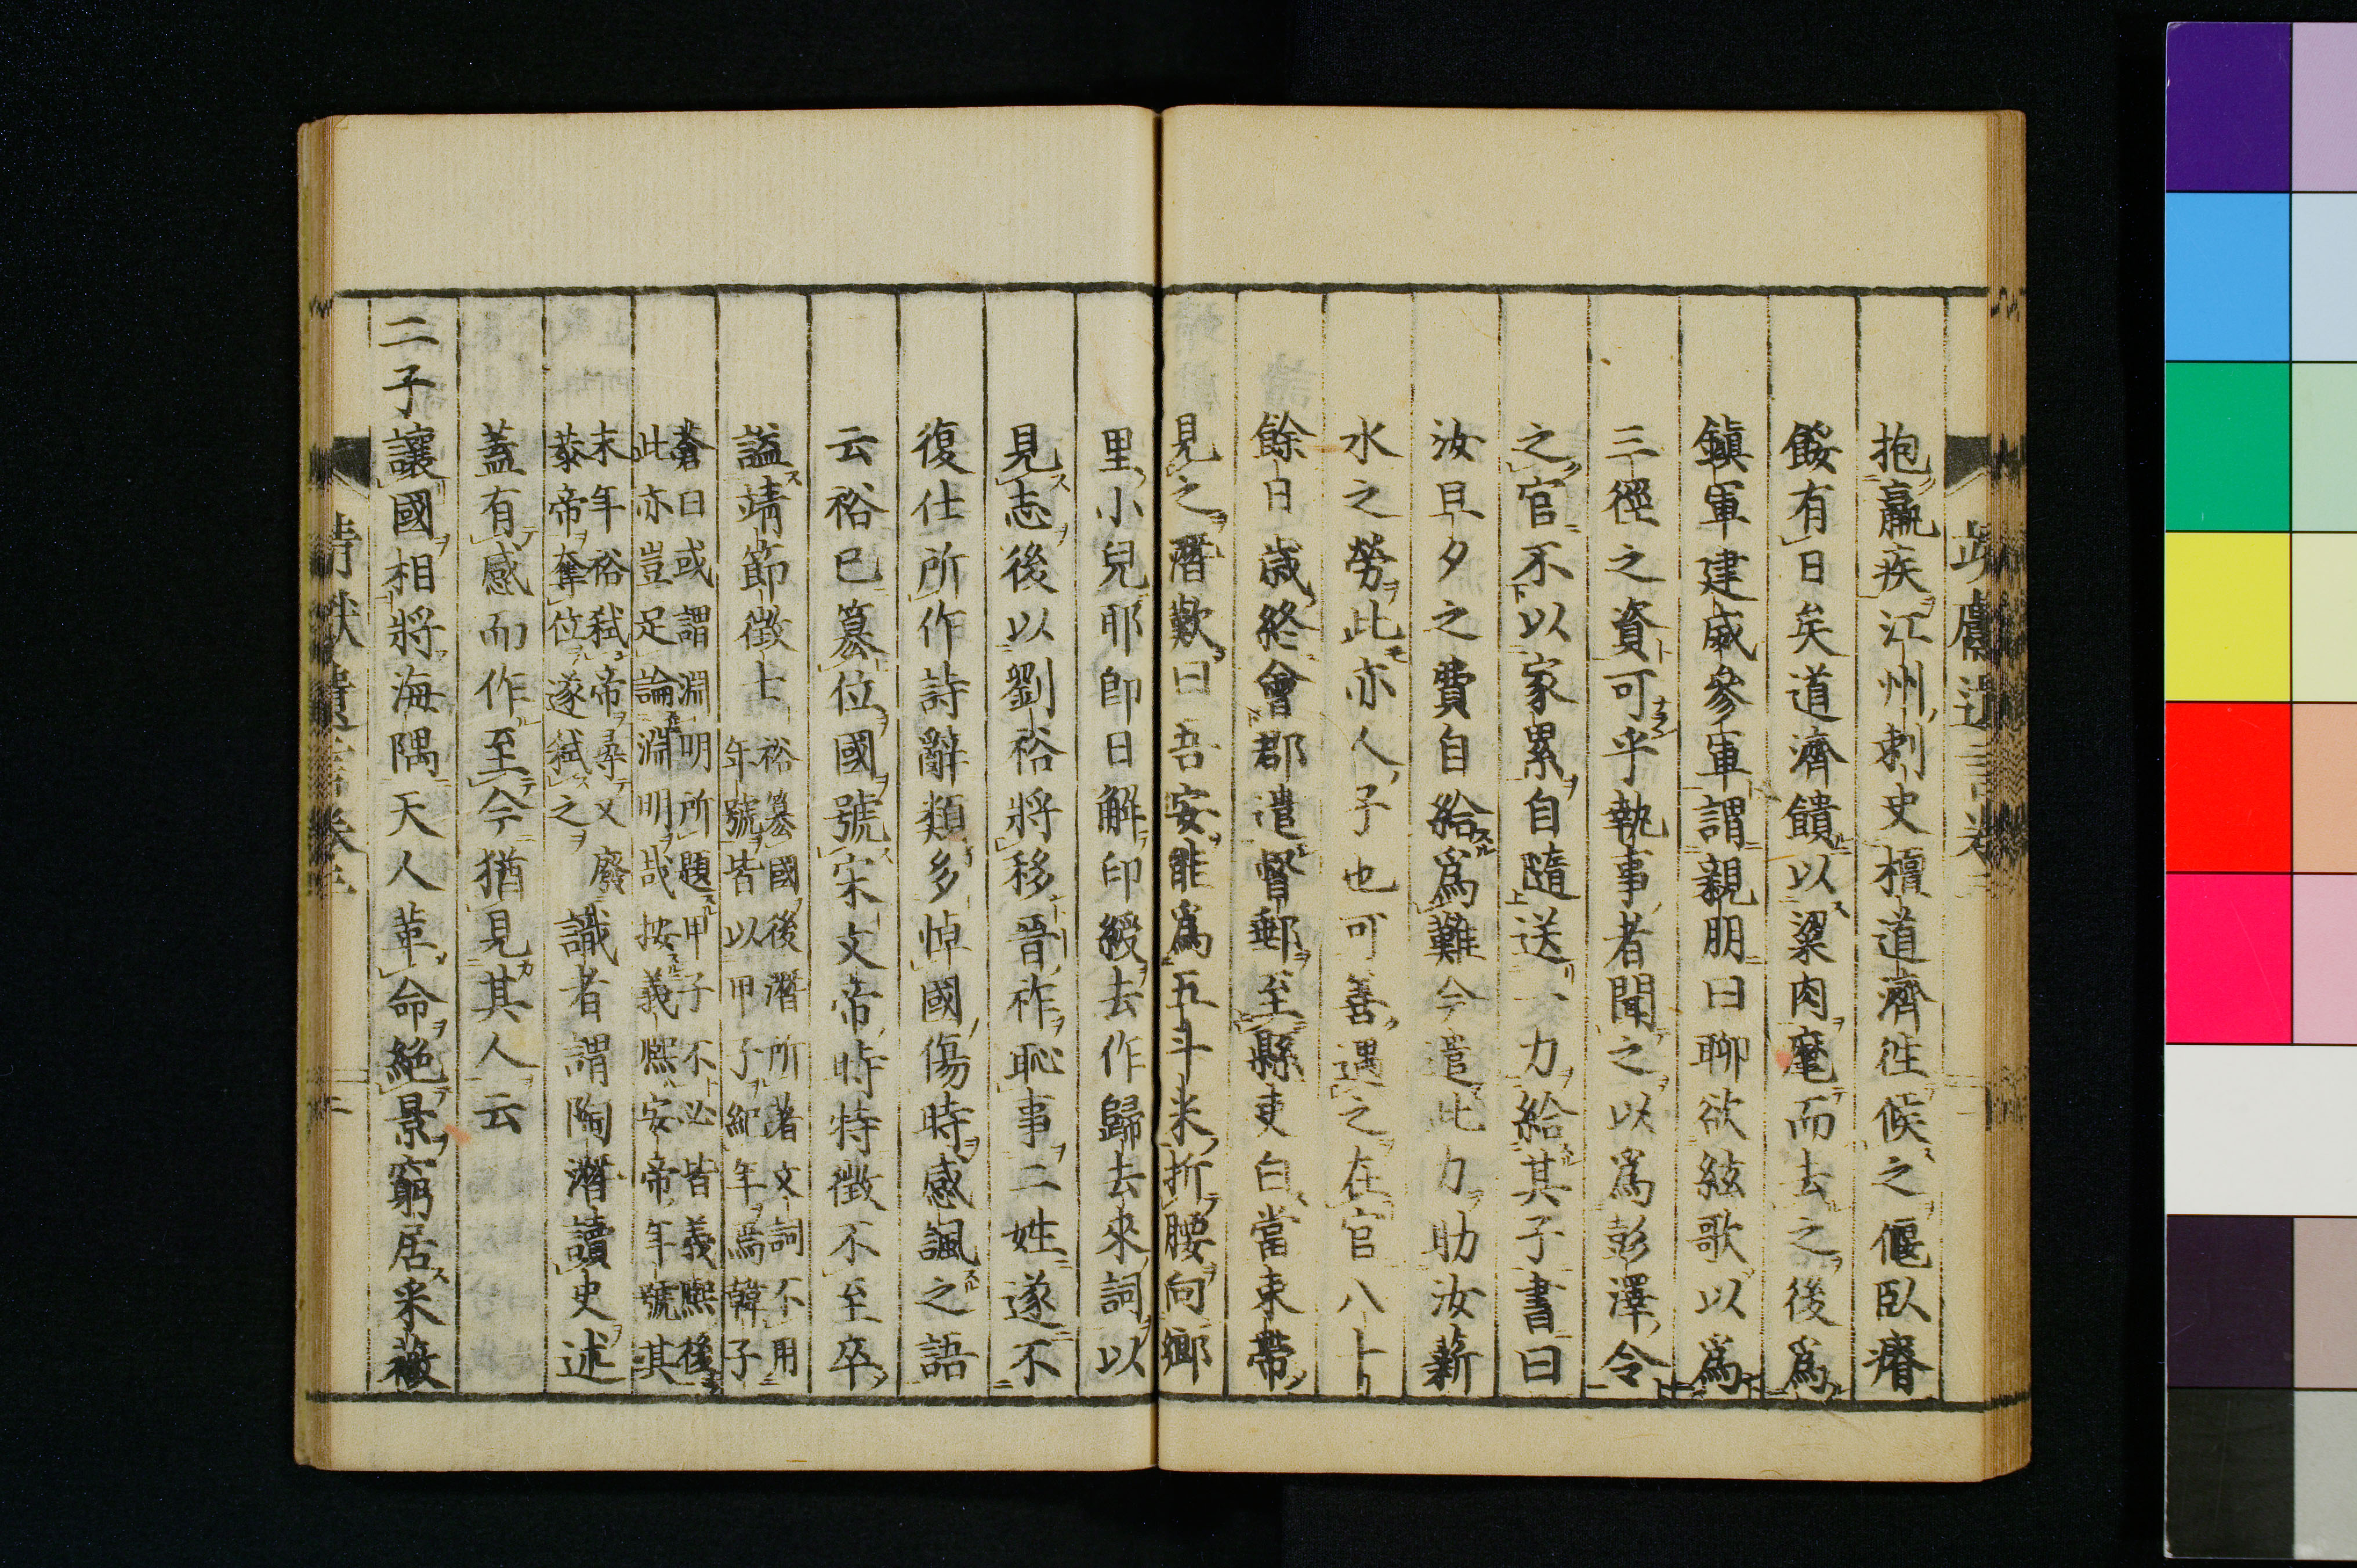 抱羸疾江州刺史檀道濟往候之偃臥瘠
餒有日矣道濟饋以粱肉麾而去之後爲
鎭軍建威參軍謂親朋曰聊欲絃歌以爲
三徑之資可乎執事者聞之以爲彭澤令
之官不以家累自隨送一力給其子書曰
汝旦夕之費自給爲難今遣此力助汝薪
水之勞此亦人子也可善遇之在官八十
餘日歳終會郡遣督郵至縣吏白當束帶
見之潛歎曰吾安能爲五斗米折腰向鄉
里小兒耶即日解印綬去作歸去來詞以
見志後以劉裕將移晉祚恥事二姓遂不
復仕所作詩辭類多悼國傷時感諷之語
云裕已簒位國號宋文帝時特徵不至卒
謚靖節徵士 裕簒國後潛所著文詞不用
年號皆以甲子紀年爲韓子
蒼曰或謂淵明所題甲子不必皆義熙後
此亦豈足論淵明哉按義熙安帝年號其
末年裕弑帝尋又廢
恭帝奪位遂弑之
識者謂陶潛讀史述
蓋有感而作至今猶見其人云
二子讓國相將海隅天人革命絶景窮居采薇